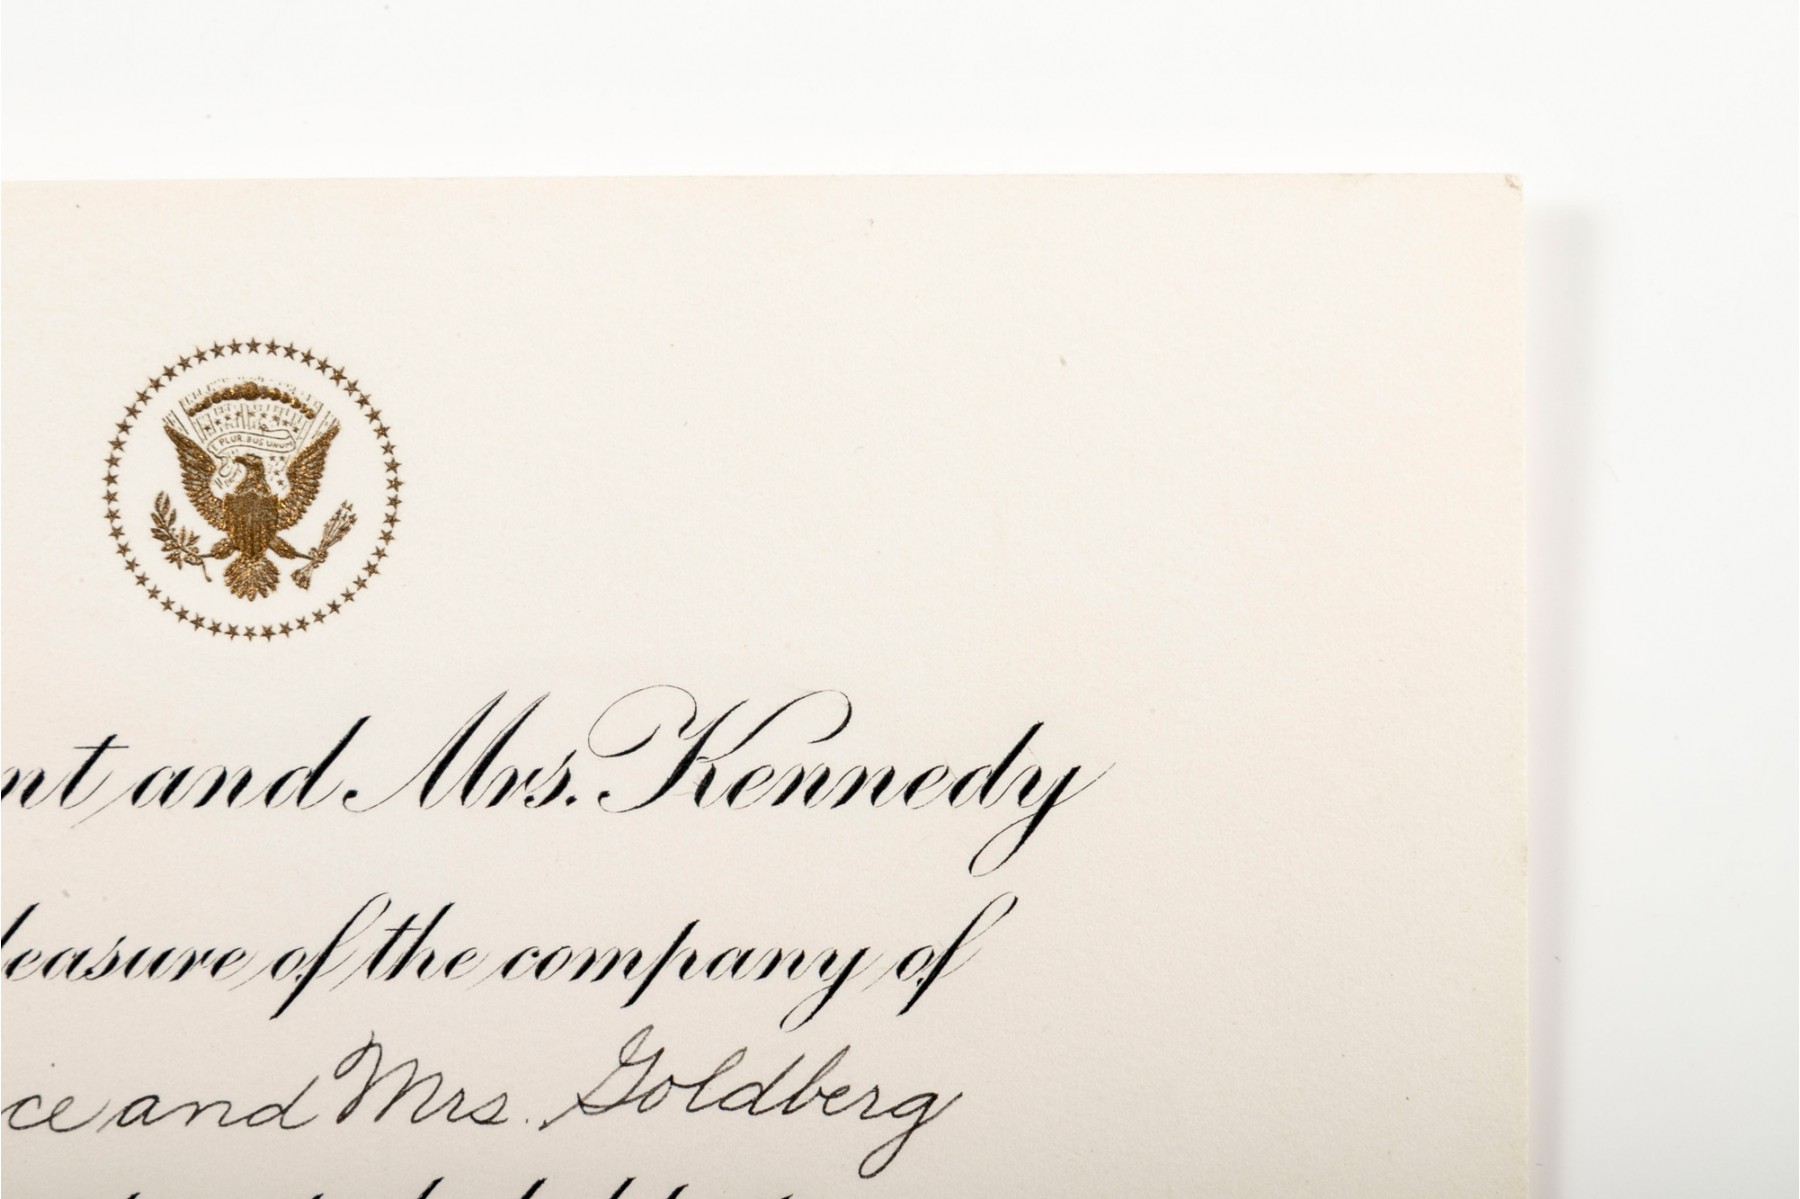 E PLURIBUS UNUM
nt and Mrs. Kennedy
leasure of the company of
ce and Mrs. Goldberg